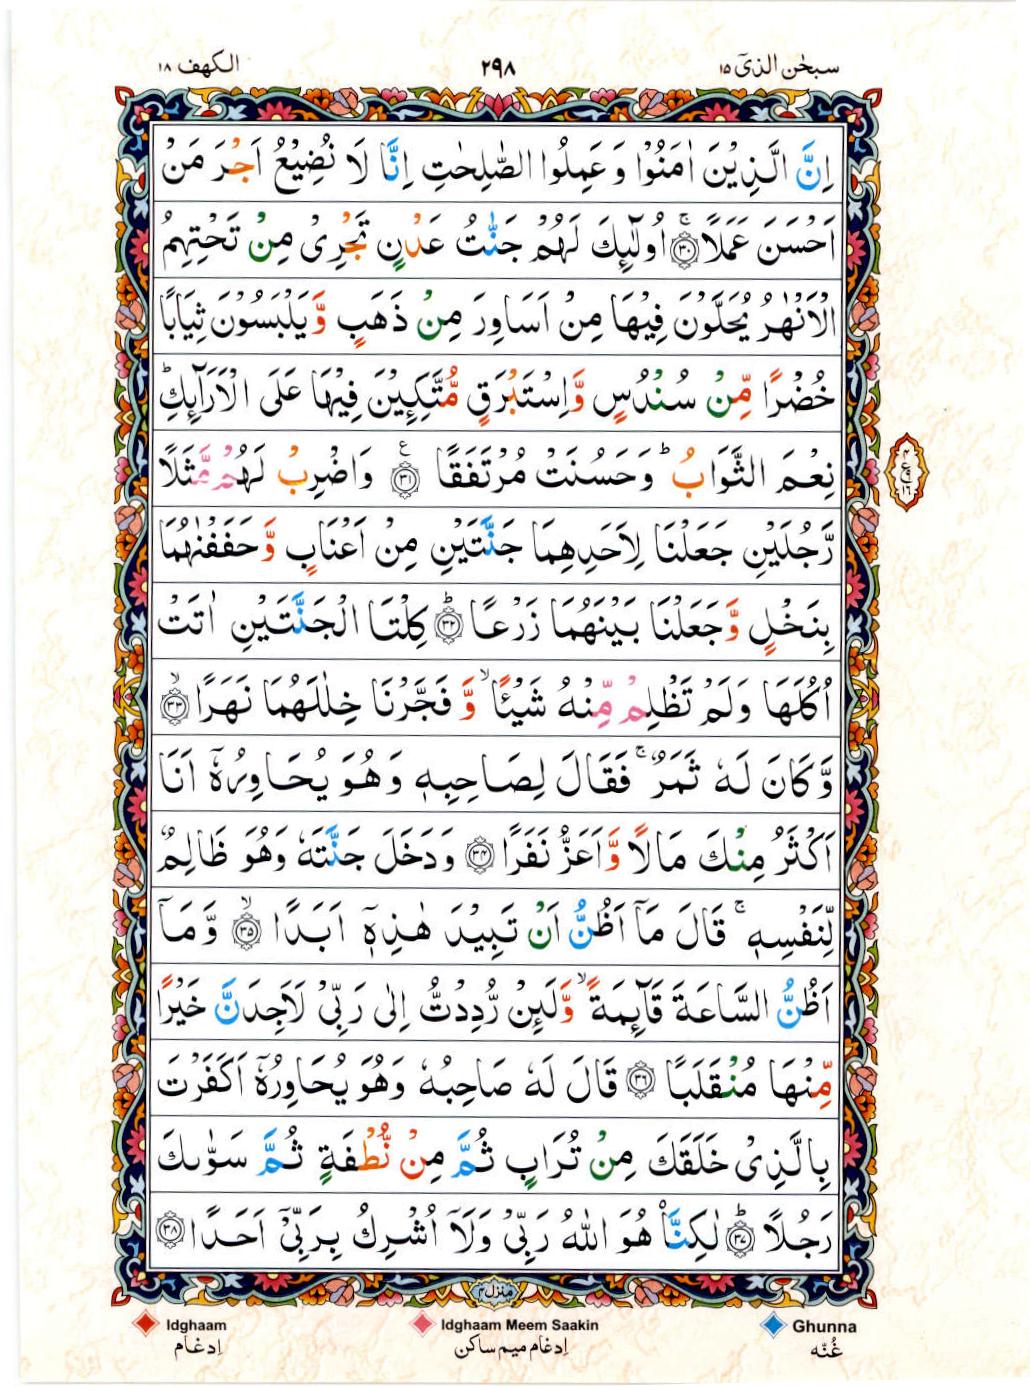 سبحٰن الذیٓ ۱۵
۲۹۸
الکهف ۱۸
اِنَّ الَّذِيْنَ اٰمَنُوْا وَ عَمِلُوا الصّٰلِحٰتِ اِنَّا لَا نُضِيْعُ اَجْرَ مَنْ
اَحْسَنَ عَمَلًا ۚ۝۳۰ اُولٰٓئِكَ لَهُمْ جَنّٰتُ عَدْنٍ تَجْرِيْ مِنْ تَحْتِهِمُ
الْاَنْهٰرُ يُحَلَّوْنَ فِيْهَا مِنْ اَسَاوِرَ مِنْ ذَهَبٍ وَّيَلْبَسُوْنَ ثِيَابًا
خُضْرًا مِّنْ سُنْدُسٍ وَّاِسْتَبْرَقٍ مُّتَّكِـِٕيْنَ فِيْهَا عَلَى الْاَرَآئِكِ ؕ
نِعْمَ الثَّوَابُ ؕ وَحَسُنَتْ مُرْتَفَقًا ۝۳۱ۧ وَاضْرِبْ لَهُمْ مَّثَلًا
رَّجُلَيْنِ جَعَلْنَا لِاَحَدِهِمَا جَنَّتَيْنِ مِنْ اَعْنَابٍ وَّحَفَفْنٰهُمَا
بِنَخْلٍ وَّجَعَلْنَا بَيْنَهُمَا زَرْعًا ؕ۝۳۲ كِلْتَا الْجَنَّتَيْنِ اٰتَتْ
اُكُلَهَا وَلَمْ تَظْلِمْ مِّنْهُ شَيْـًٔا ۙ وَّ فَجَّرْنَا خِلٰلَهُمَا نَهَرًا ۙ۝۳۳
وَّ كَانَ لَهٗ ثَمَرٌ ۚ فَقَالَ لِصَاحِبِهٖ وَهُوَ يُحَاوِرُهٗۤ اَنَا
اَكْثَرُ مِنْكَ مَالًا وَّاَعَزُّ نَفَرًا ۝۳۴ وَدَخَلَ جَنَّتَهٗ وَهُوَ ظَالِمٌ
لِّنَفْسِهٖ ۚ قَالَ مَاۤ اَظُنُّ اَنْ تَبِيْدَ هٰذِهٖۤ اَبَدًا ۙ۝۳۵ وَّمَاۤ
اَظُنُّ السَّاعَةَ قَآئِمَةً ۙ وَّلَئِنْ رُّدِدْتُّ اِلٰى رَبِّيْ لَاَجِدَنَّ خَيْرًا
مِّنْهَا مُنْقَلَبًا ۝۳۶ قَالَ لَهٗ صَاحِبُهٗ وَهُوَ يُحَاوِرُهٗۤ اَكَفَرْتَ
بِالَّذِيْ خَلَقَكَ مِنْ تُرَابٍ ثُمَّ مِنْ نُّطْفَةٍ ثُمَّ سَوّٰىكَ
رَجُلًا ؕ۝۳۷ لٰكِنَّا۠ هُوَ اللّٰهُ رَبِّيْ وَلَاۤ اُشْرِكُ بِرَبِّيْۤ اَحَدًا ۝۳۸
منزل ۴
Idghaam
Idghaam Meem Saakin
Ghunna
اِدغام
اِدغام ميم ساكن
غُنّه